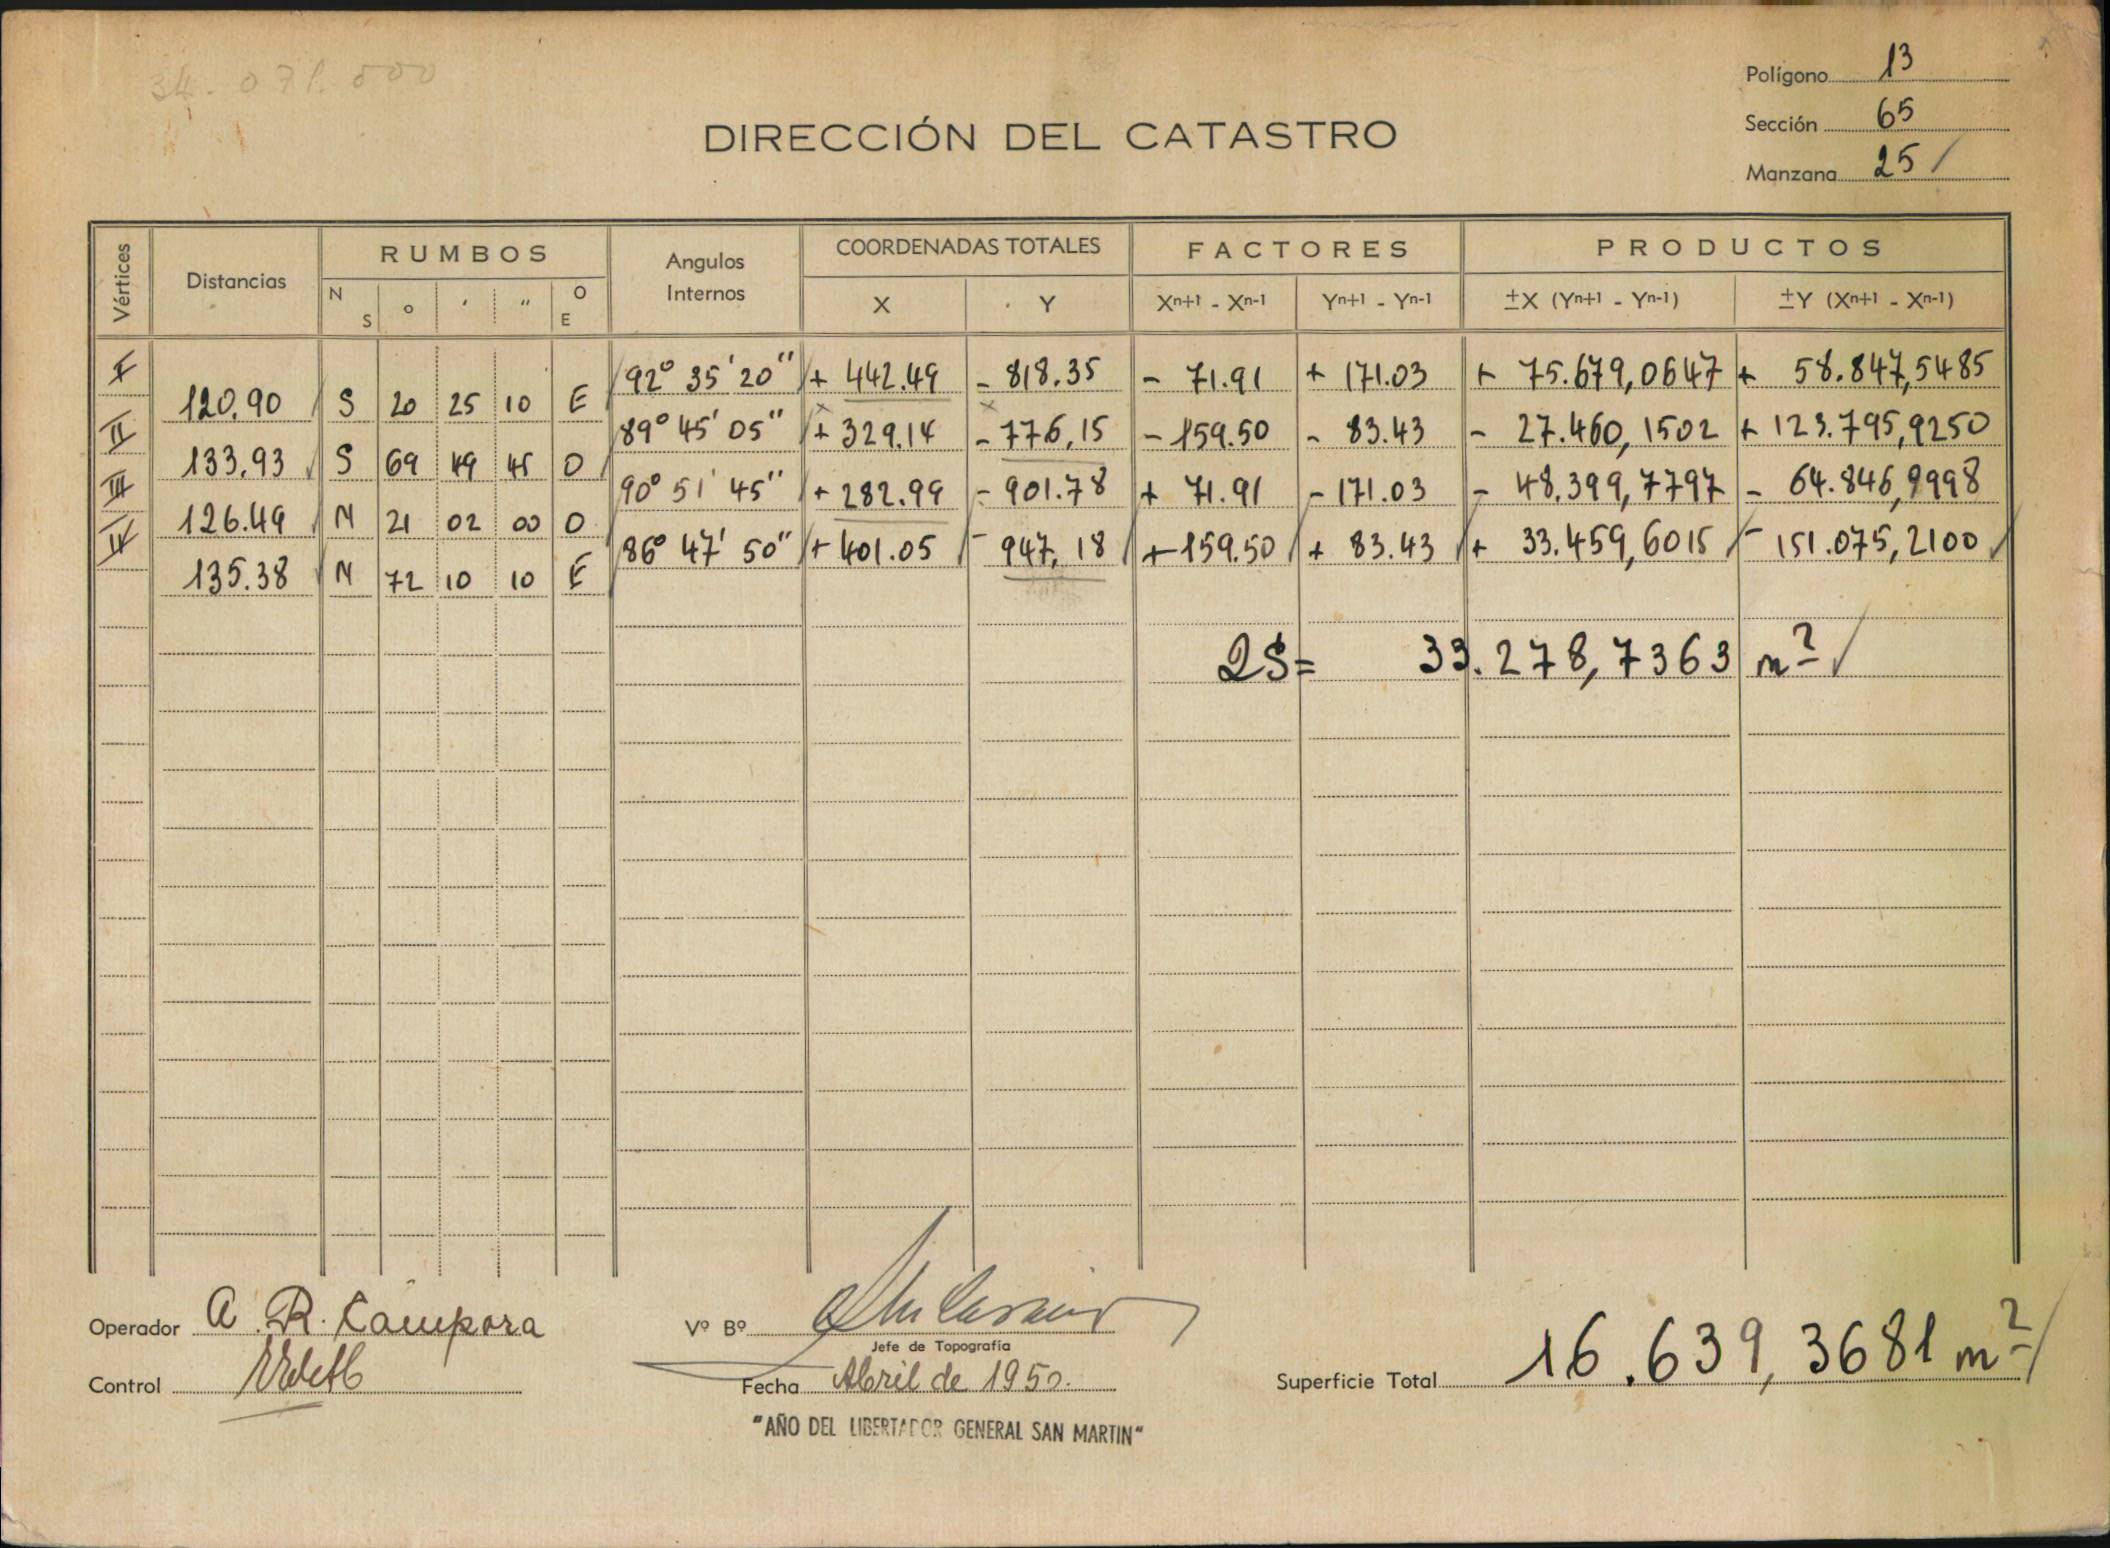 34.071.000
Polígono 13
Sección 65
Manzana 25
DIRECCIÓN DEL CATASTRO
Vértices Distancias RUMBOS Angulos Internos COORDENADAS TOTALES FACTORES PRODUCTOS
N S ° ' " O E X Y Xn+1 - Xn-1 Yn+1 - Yn-1 ±X (Yn+1 - Yn-1) ±Y (Xn+1 - Xn-1)
I 92° 35' 20" + 442.49 - 818.35 - 71.91 + 171.03 + 75.679,0647 + 58.847,5485
120.90 S 20 25 10 E
II 89° 45' 05" + 329.14 - 776,15 - 159.50 - 83.43 - 27.460,1502 + 123.795,9250
133.93 S 69 49 45 O
III 90° 51' 45" + 282.99 - 901.78 + 71.91 - 171.03 - 48.399,7797 - 64.846,9998
126.49 N 21 02 00 O
IV 86° 47' 50" + 401.05 - 947,18 + 159.50 + 83.43 + 33.459,6015 - 151.075,2100
135.38 N 72 10 10 E
2S = 33.278,7363 m²
Operador A. R. Campora
Vº Bº
Jefe de Topografía
Control
Fecha Abril de 1950.
Superficie Total 16.639,3681 m²
"AÑO DEL LIBERTADOR GENERAL SAN MARTIN"